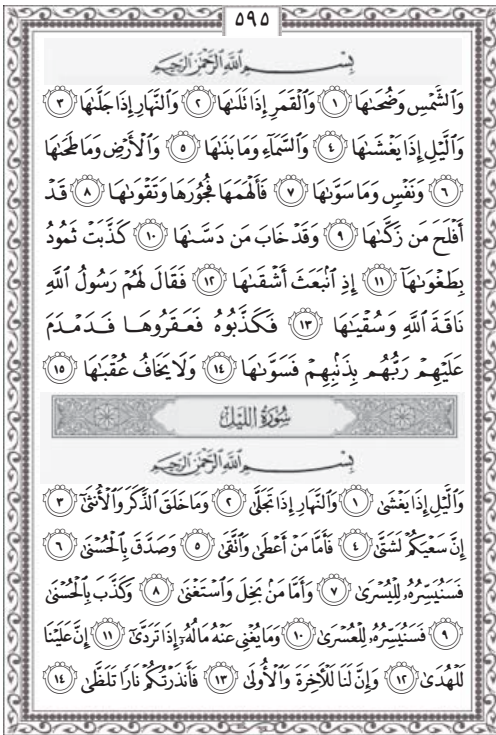 ٥٩٥
بِسْمِ ٱللَّهِ ٱلرَّحْمَٰنِ ٱلرَّحِيمِ
وَٱلشَّمْسِ وَضُحَىٰهَا ١ وَٱلْقَمَرِ إِذَا تَلَىٰهَا ٢ وَٱلنَّهَارِ إِذَا جَلَّىٰهَا ٣
وَٱلَّيْلِ إِذَا يَغْشَىٰهَا ٤ وَٱلسَّمَآءِ وَمَا بَنَىٰهَا ٥ وَٱلْأَرْضِ وَمَا طَحَىٰهَا
٦ وَنَفْسٍ وَمَا سَوَّىٰهَا ٧ فَأَلْهَمَهَا فُجُورَهَا وَتَقْوَىٰهَا ٨ قَدْ
أَفْلَحَ مَن زَكَّىٰهَا ٩ وَقَدْ خَابَ مَن دَسَّىٰهَا ١٠ كَذَّبَتْ ثَمُودُ
بِطَغْوَىٰهَآ ١١ إِذِ ٱنۢبَعَثَ أَشْقَىٰهَا ١٢ فَقَالَ لَهُمْ رَسُولُ ٱللَّهِ
نَاقَةَ ٱللَّهِ وَسُقْيَٰهَا ١٣ فَكَذَّبُوهُ فَعَقَرُوهَا فَدَمْدَمَ
عَلَيْهِمْ رَبُّهُم بِذَنۢبِهِمْ فَسَوَّىٰهَا ١٤ وَلَا يَخَافُ عُقْبَٰهَا ١٥
سُورَةُ اللَّيْلِ
بِسْمِ ٱللَّهِ ٱلرَّحْمَٰنِ ٱلرَّحِيمِ
وَٱلَّيْلِ إِذَا يَغْشَىٰ ١ وَٱلنَّهَارِ إِذَا تَجَلَّىٰ ٢ وَمَا خَلَقَ ٱلذَّكَرَ وَٱلْأُنثَىٰٓ ٣
إِنَّ سَعْيَكُمْ لَشَتَّىٰ ٤ فَأَمَّا مَنْ أَعْطَىٰ وَٱتَّقَىٰ ٥ وَصَدَّقَ بِٱلْحُسْنَىٰ ٦
فَسَنُيَسِّرُهُۥ لِلْيُسْرَىٰ ٧ وَأَمَّا مَنۢ بَخِلَ وَٱسْتَغْنَىٰ ٨ وَكَذَّبَ بِٱلْحُسْنَىٰ
٩ فَسَنُيَسِّرُهُۥ لِلْعُسْرَىٰ ١٠ وَمَا يُغْنِى عَنْهُ مَالُهُۥٓ إِذَا تَرَدَّىٰٓ ١١ إِنَّ عَلَيْنَا
لَلْهُدَىٰ ١٢ وَإِنَّ لَنَا لَلْءَاخِرَةَ وَٱلْأُولَىٰ ١٣ فَأَنذَرْتُكُمْ نَارًا تَلَظَّىٰ ١٤